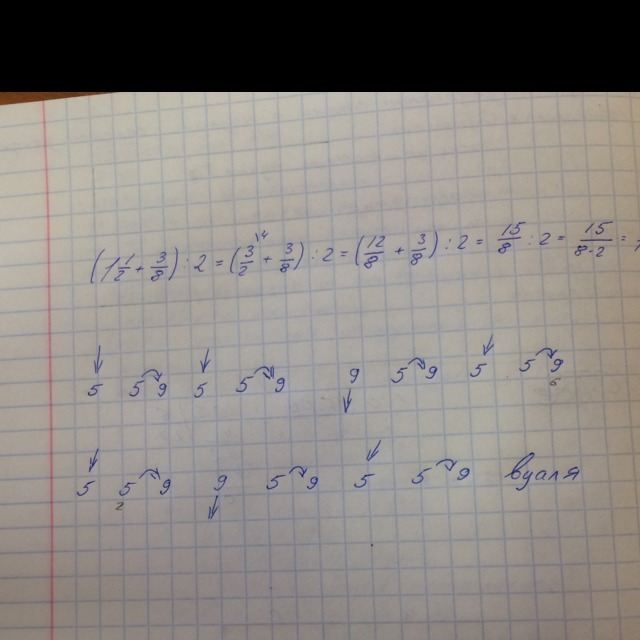 (1 1/2 + 3/8) : 2 = (3/2 \4 + 3/8) : 2 = (12/8 + 3/8) : 2 = 15/8 : 2 = 15/(8·2) =
↓5 5⌒9 ↓5 5⌒9 9↓ 5⌒9 ↓5 5⌒9
↓5 5⌒9 9↓ 5⌒9 ↓5 5⌒9 вуаля